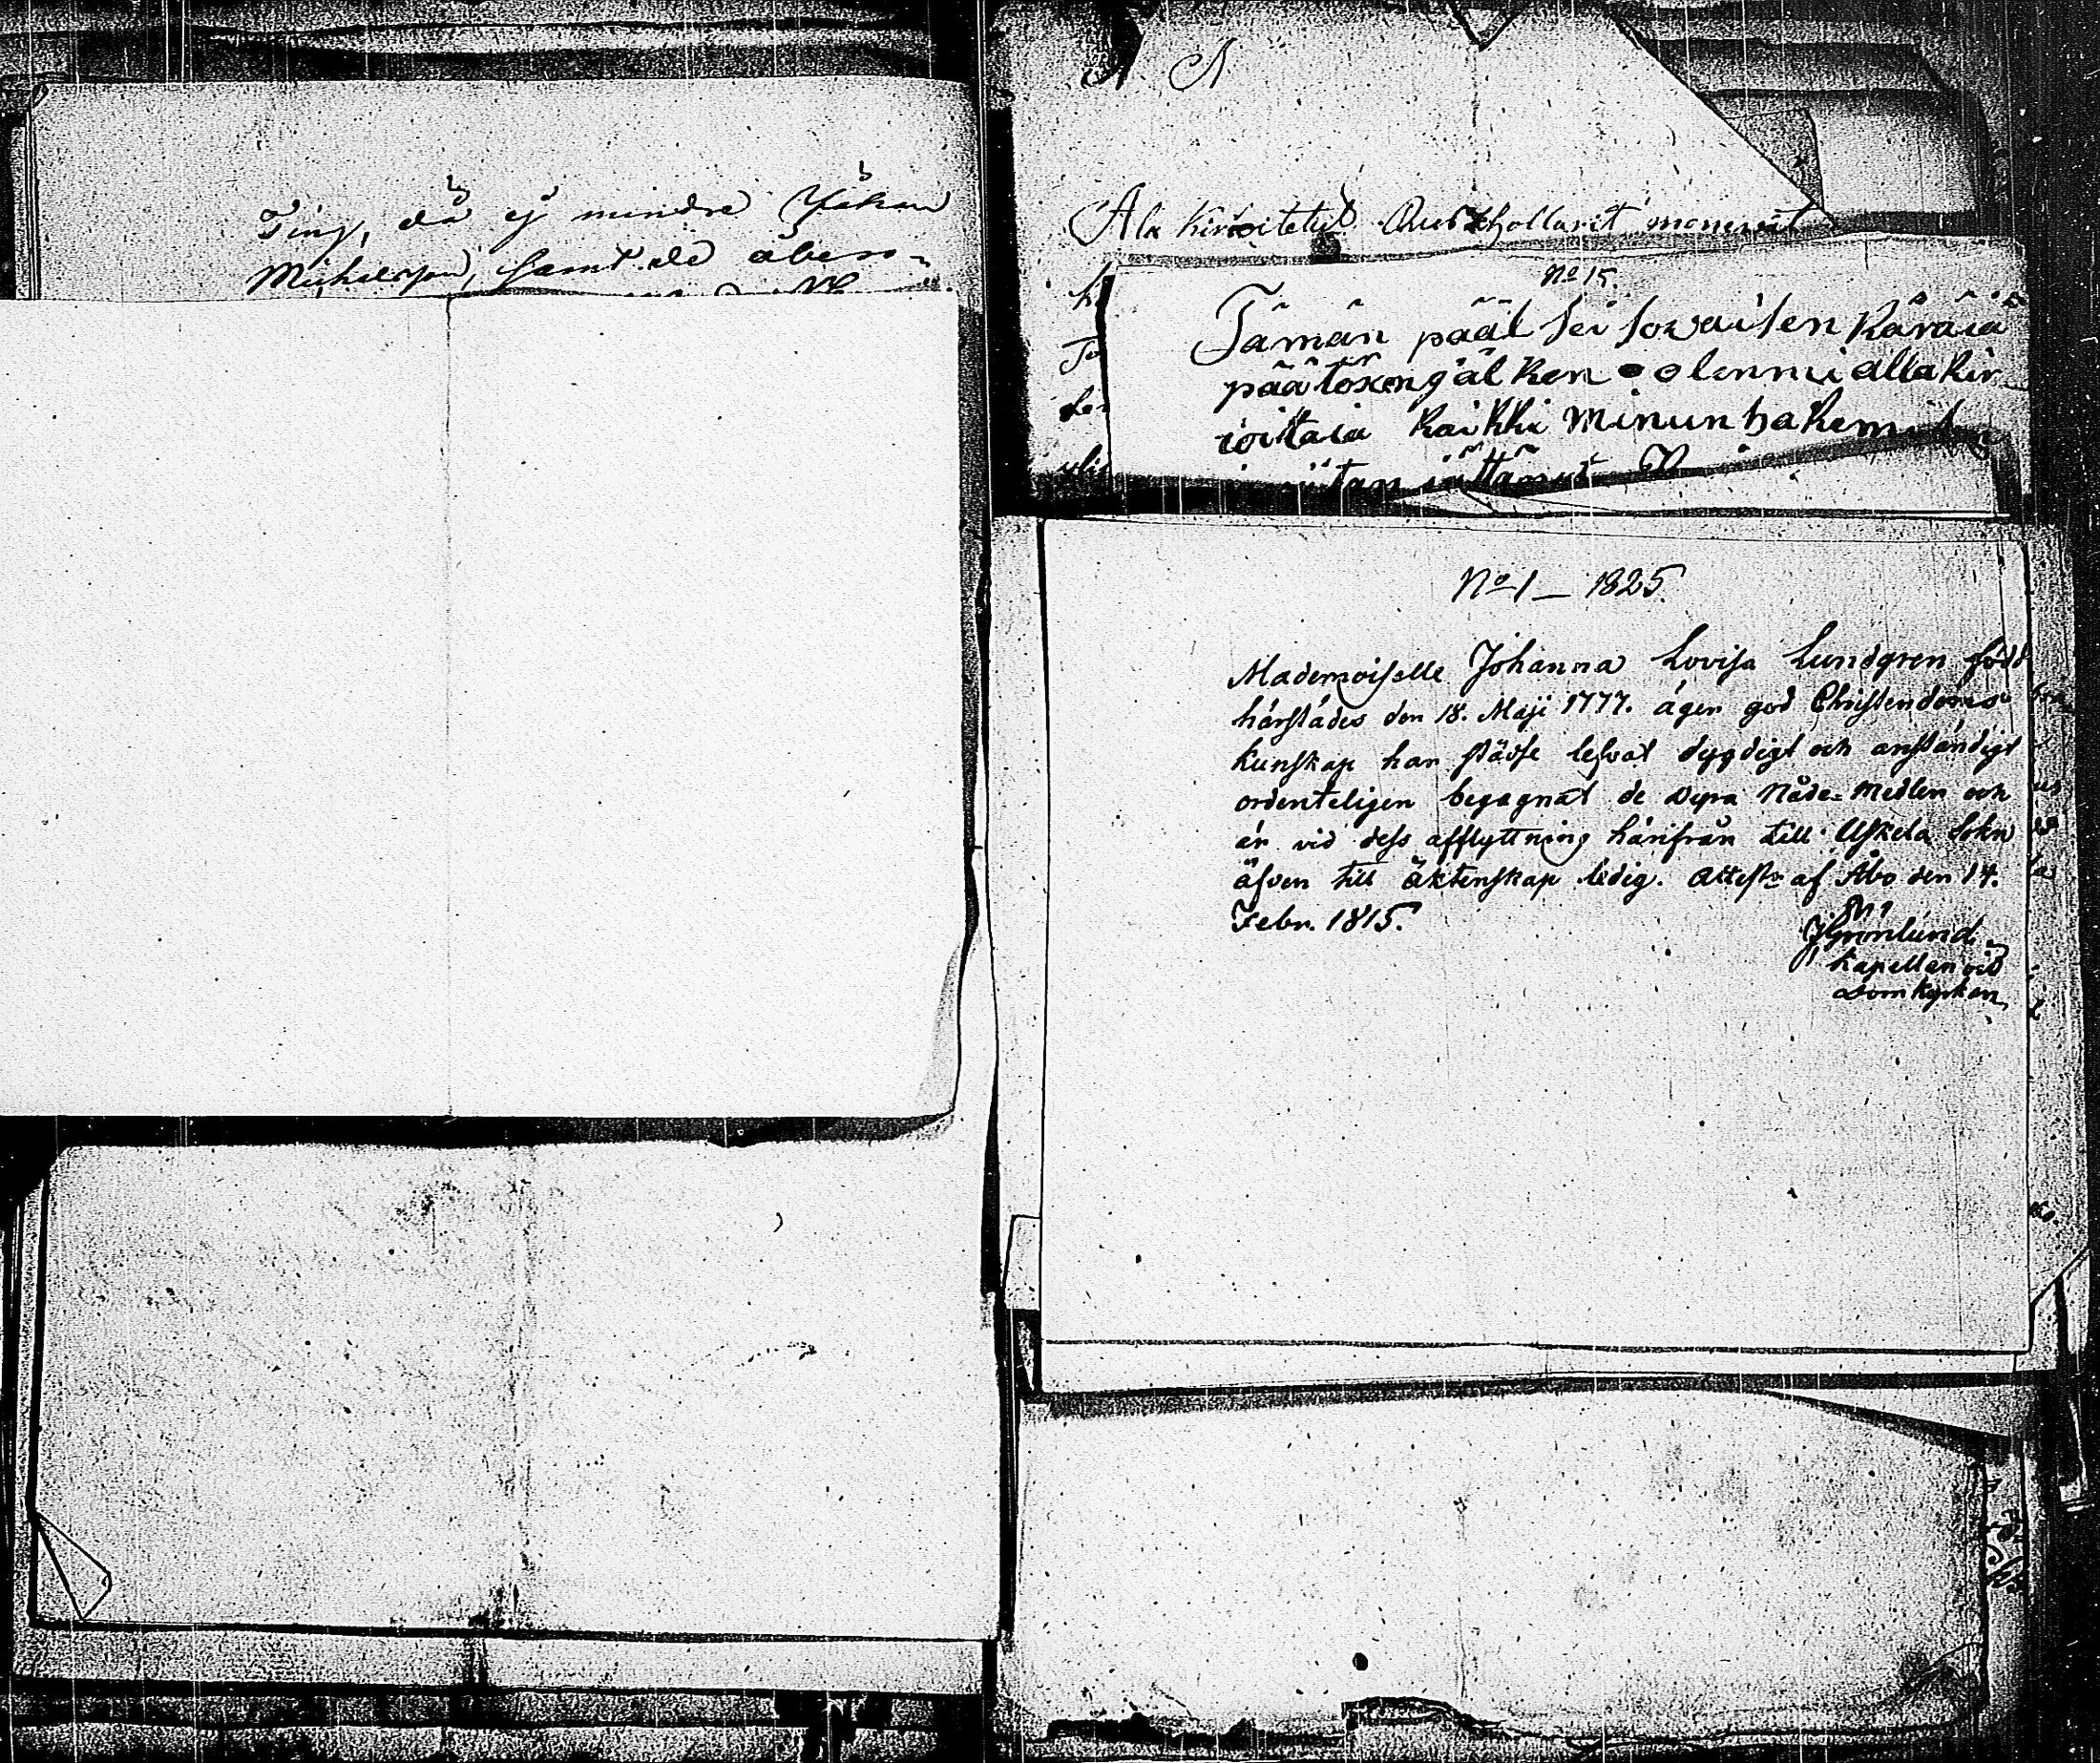 Ting, då ej mindre
Michelsson, samt de
A. A
Ala kirioitetut Rusthollarit
No 15.
Tämän pääl sei sowaisen käräiä
päätöxengälken olemmi alla kir
ioittaia kaikki minun hakem
iättänyt
No 1 — 1825.
Mademoiselle Johanna Lovisa Lundgren född
härstädes den 18. Maji 1777. äger god Christendoms
kunskap har städse lefvat dygdigt och anständigt
ordenteligen begagnat de dyra Nåde-medlen och
är vid dess afflyttning härifrån till Uskela Sokn
äfven till äktenskap ledig. Attest. af Åbo den 14.
Febr. 1815.
J Grönlund
Kapellan vid
Domkyrkan